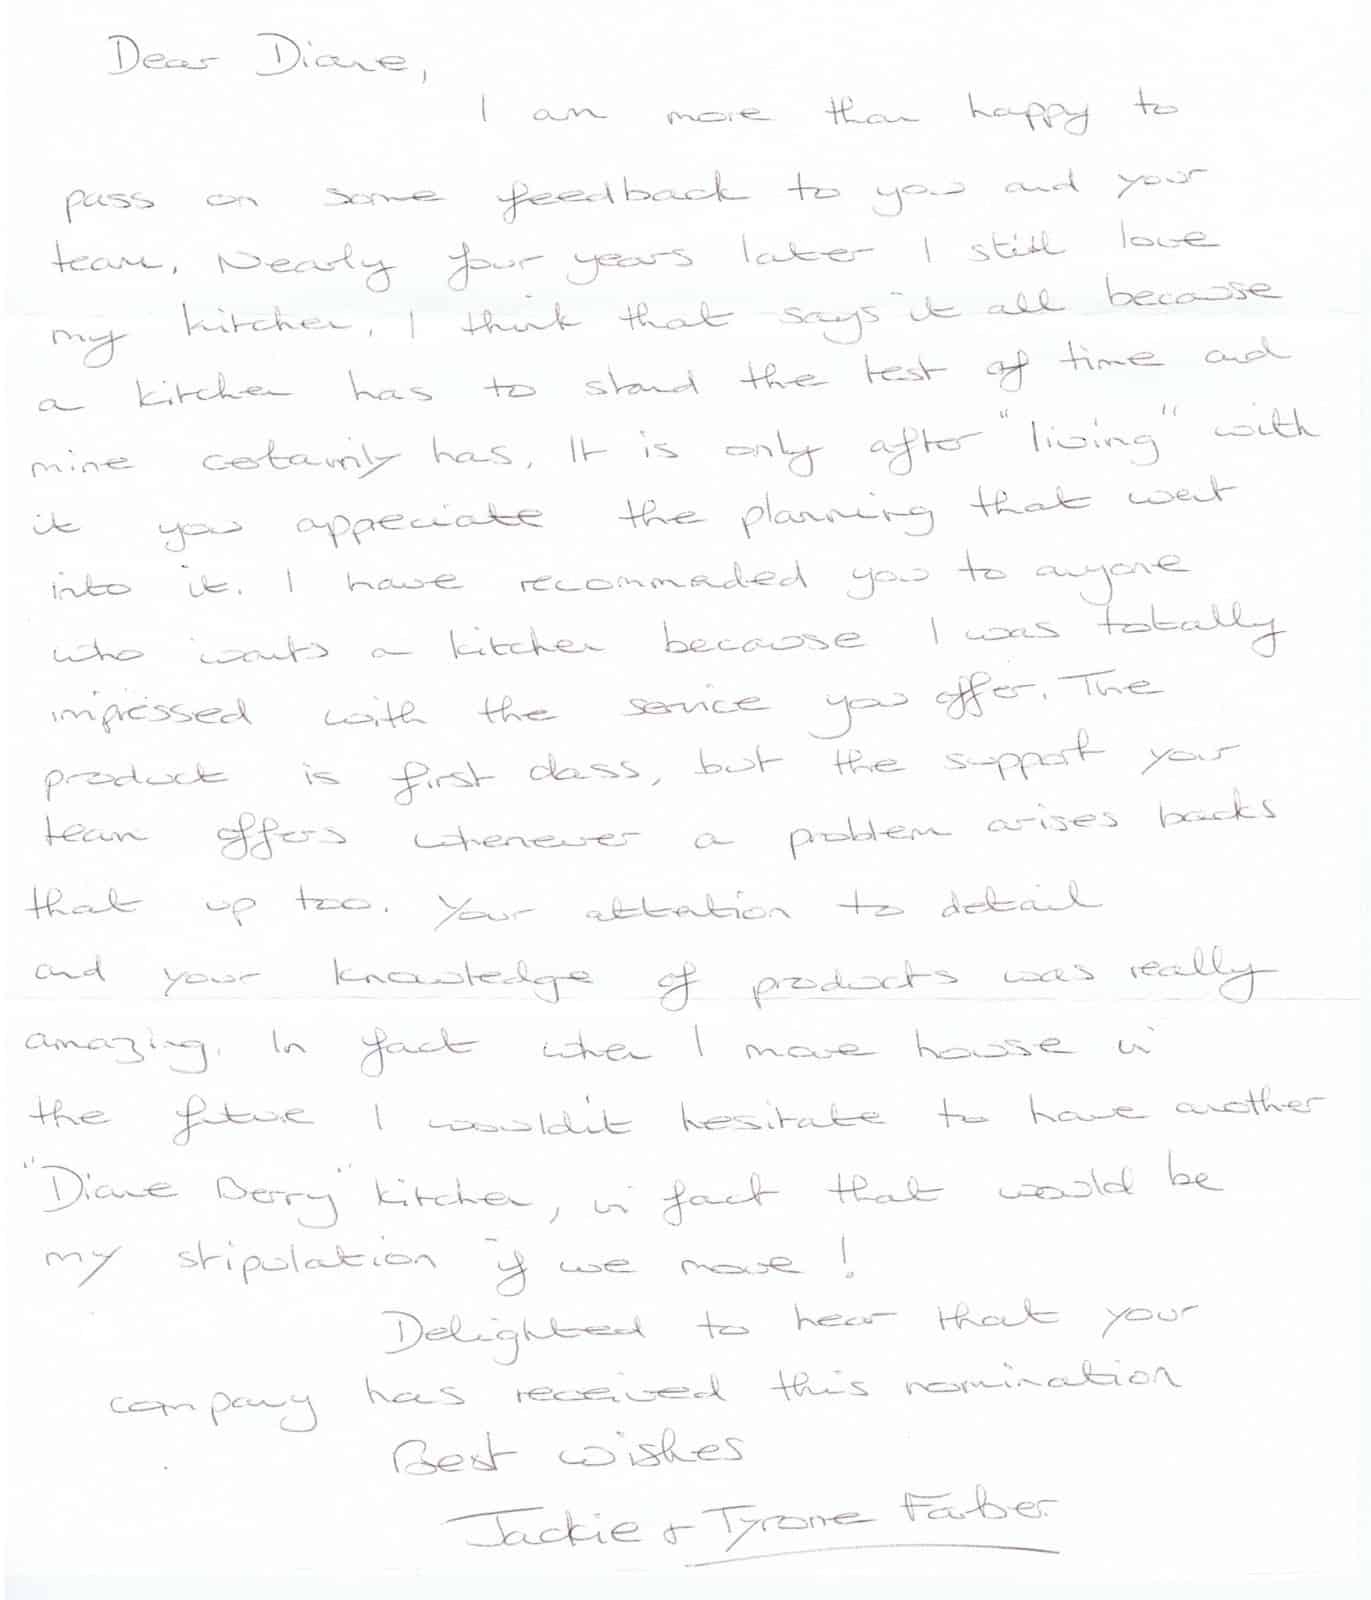 Dear Diane,
I am more than happy to
pass on some feedback to you and your
team. Nearly four years later I still love
my kitchen. I think that says it all because
a kitchen has to stand the test of time and
mine cetainly has. It is only after "living" with
it you appreciate the planning that went
into it. I have recommended you to anyone
who wants a kitchen because I was totally
impressed with the service you offer. The
product is first class, but the support your
team offers whenever a problem arises backs
that up too. Your attention to detail
and your knowledge of products was really
amazing. In fact when I move house in
the future I wouldn't hesitate to have another
"Diane Berry" kitchen, in fact that would be
my stipulation if we move!
Delighted to hear that your
company has received this nomination
Best wishes
Jackie + Tyrone Farber.